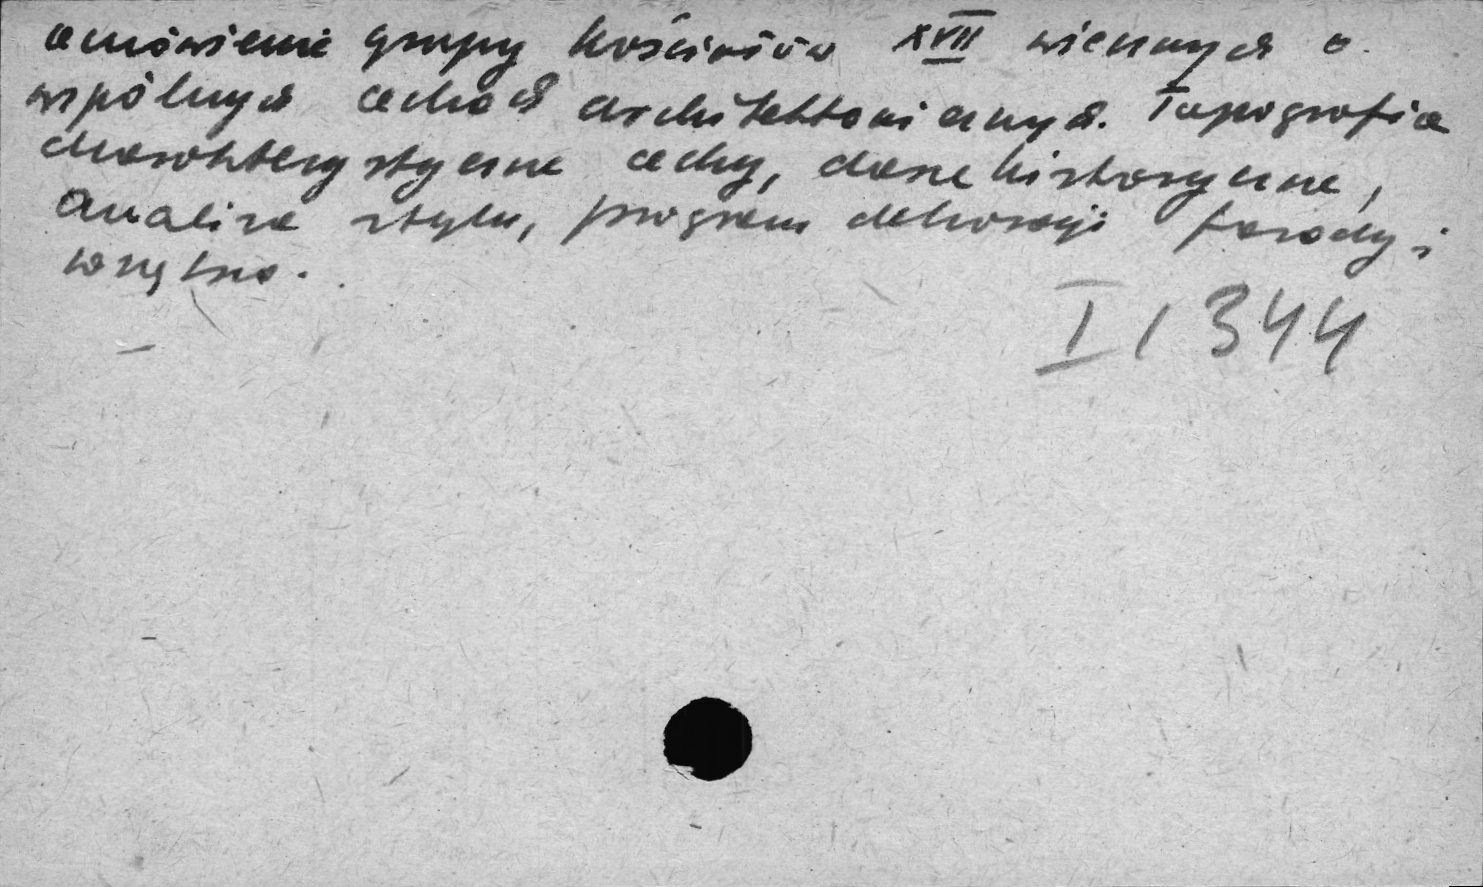 omówienie grupy kościołów XVII wiecznych o
wspólnych cechach architektonicznych. Topografia
charakterystyczne cechy, dane historyczne,
analiza stylu, program dekoracji fasady i
wnętrza.
I / 344